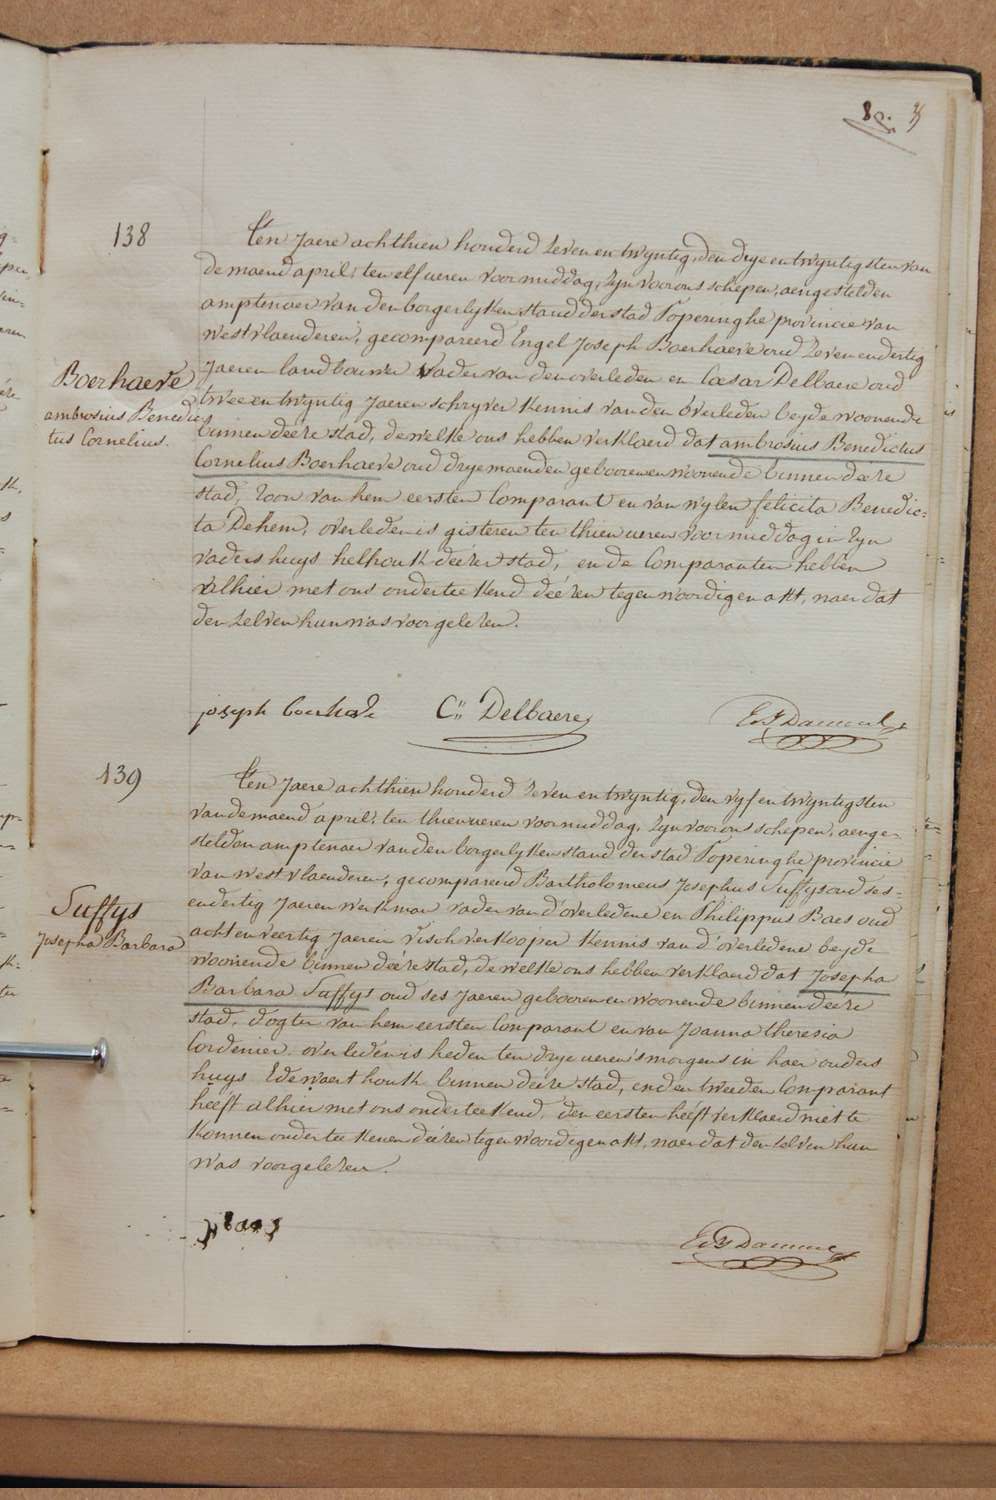 138
Ten Jaere achthien honderd zeven en twyntig, den drye en twyntigsten van
de maend april, ten elf ueren voormiddag, zyn voor ons schepen, aengestelden
amptenaer van den borgerlyken stand der stad Poperinghe provincie van
westvlaenderen, gecompareerd Engel Joseph Boerhaeve oud zeven en dertig
Boerhaeve
ambrosius Benedic
tus Cornelius.
Jaeren landbouwer vader van den overleden en Cæsar Delbaere oud
twee en twyntig Jaeren schryver kennis van den overleden beyde woonende
binnen deéze stad, dewelke ons hebben verklaerd dat ambrosius Benedictus
Cornelius Boerhaeve oud drye maenden gebooren en woonende binnen deéze
stad, zoon van hem eersten Comparant en van wylen felicita Benedic-
ta Dehem, overleden is gisteren ten thien ueren voormiddag in zyn
vaders huys helhouk deézer stad, en de Comparanten hebben
alhier met ons onderteekend deézen tegenwoordigen akt, naer dat
den zelven hun was voorgelezen.
joseph boerhave C. Delbaere
139
Ten Jaere achthien honderd zeven en twyntig, den vyf en twyntigsten
van de maend april, ten thien ueren voormiddag, zyn voor ons schepen, aenge-
stelden amptenaer van den borgerlyken stand der stad Poperinghe provincie
van westvlaenderen, gecompareerd Bartholomeus Josephus Suffys oud ses-
Suffys
Josepha Barbara
endertig Jaeren werkman vader van d'overledene en Philippus Baes oud
acht en veertig Jaeren vischverkooper kennis van d'overledene beyde
woonende binnen deéze stad, dewelke ons hebben verklaerd dat Josepha
Barbara Suffys oud ses Jaeren gebooren en woonende binnen deéze
stad, dogter van hem eersten Comparant en van Joanna theresia
Cordenier. overleden is heden ten drye ueren 's morgens in haer ouders
huys Edewaerthouk binnen deéze stad, en den tweeden Comparant
heéft alhier met ons onderteekend, den eersten heéft verklaerd niet te
konnen onderteekenen deézen tegenwoordigen akt, naer dat den zelven hun
was voorgelezen.
p baes